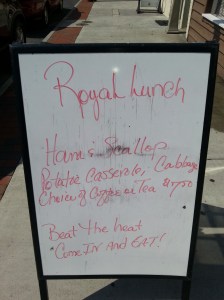 Royal Lunch
Ham & Scallop
Potatoe Casserole Cabbage
Choice of Coffee or Tea $7.50
Beat the heat
Come In And EAT!